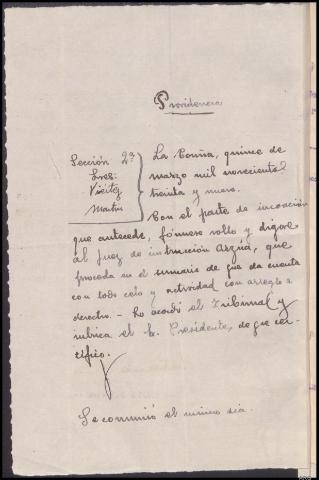 Providencia
Sección 2ª
Sres:
Vieitez
Martín
La Coruña, quince de
marzo mil novecientos
treinta y nueve.
Con el parte de incoación
que antecede, fórmese rollo y dígase
al Juez de instrucción Arzúa, que
proceda en el sumario de que da cuenta
con todo celo y actividad con arreglo a
derecho. - Lo acordó el Tribunal y
rubrica el Sr. Presidente, de que cer-
tifico.
Se comunicó el mismo día.